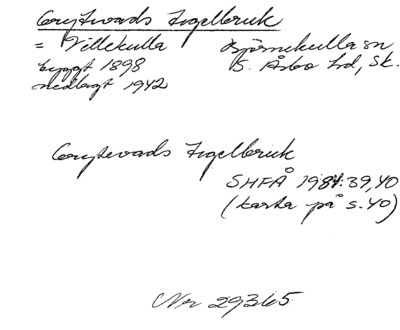 Grytevads Tegelbruk
= Villekulla
Björnekulla sn
byggt 1898
S. Åsbo hd, Sk.
nedlagt 1942
Grytevads Tegelbruk
SHFÅ 1984: 39, 40
(karta på s. 40)
Nr 29365